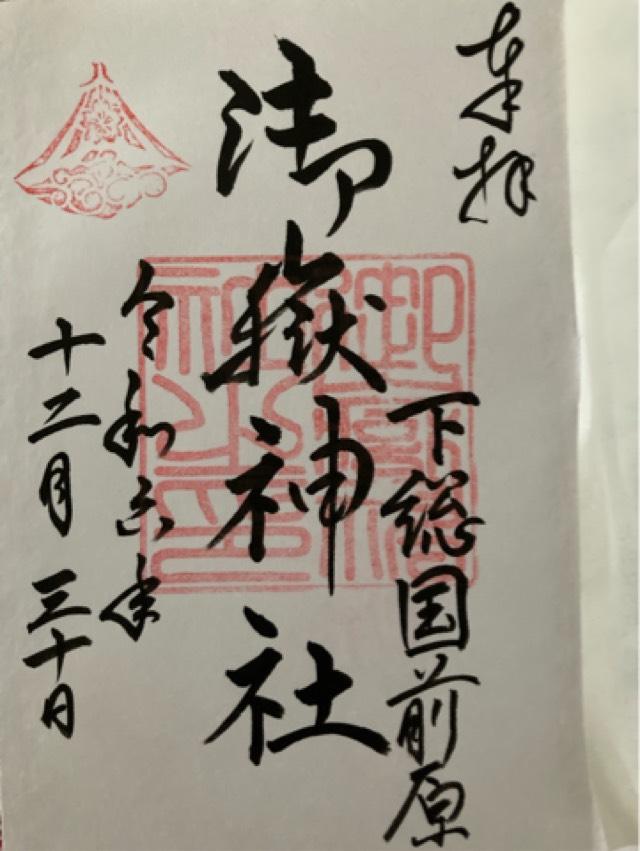 奉拝
下総国前原
御嶽神社
御嶽神社之印
令和六年
十二月三十日